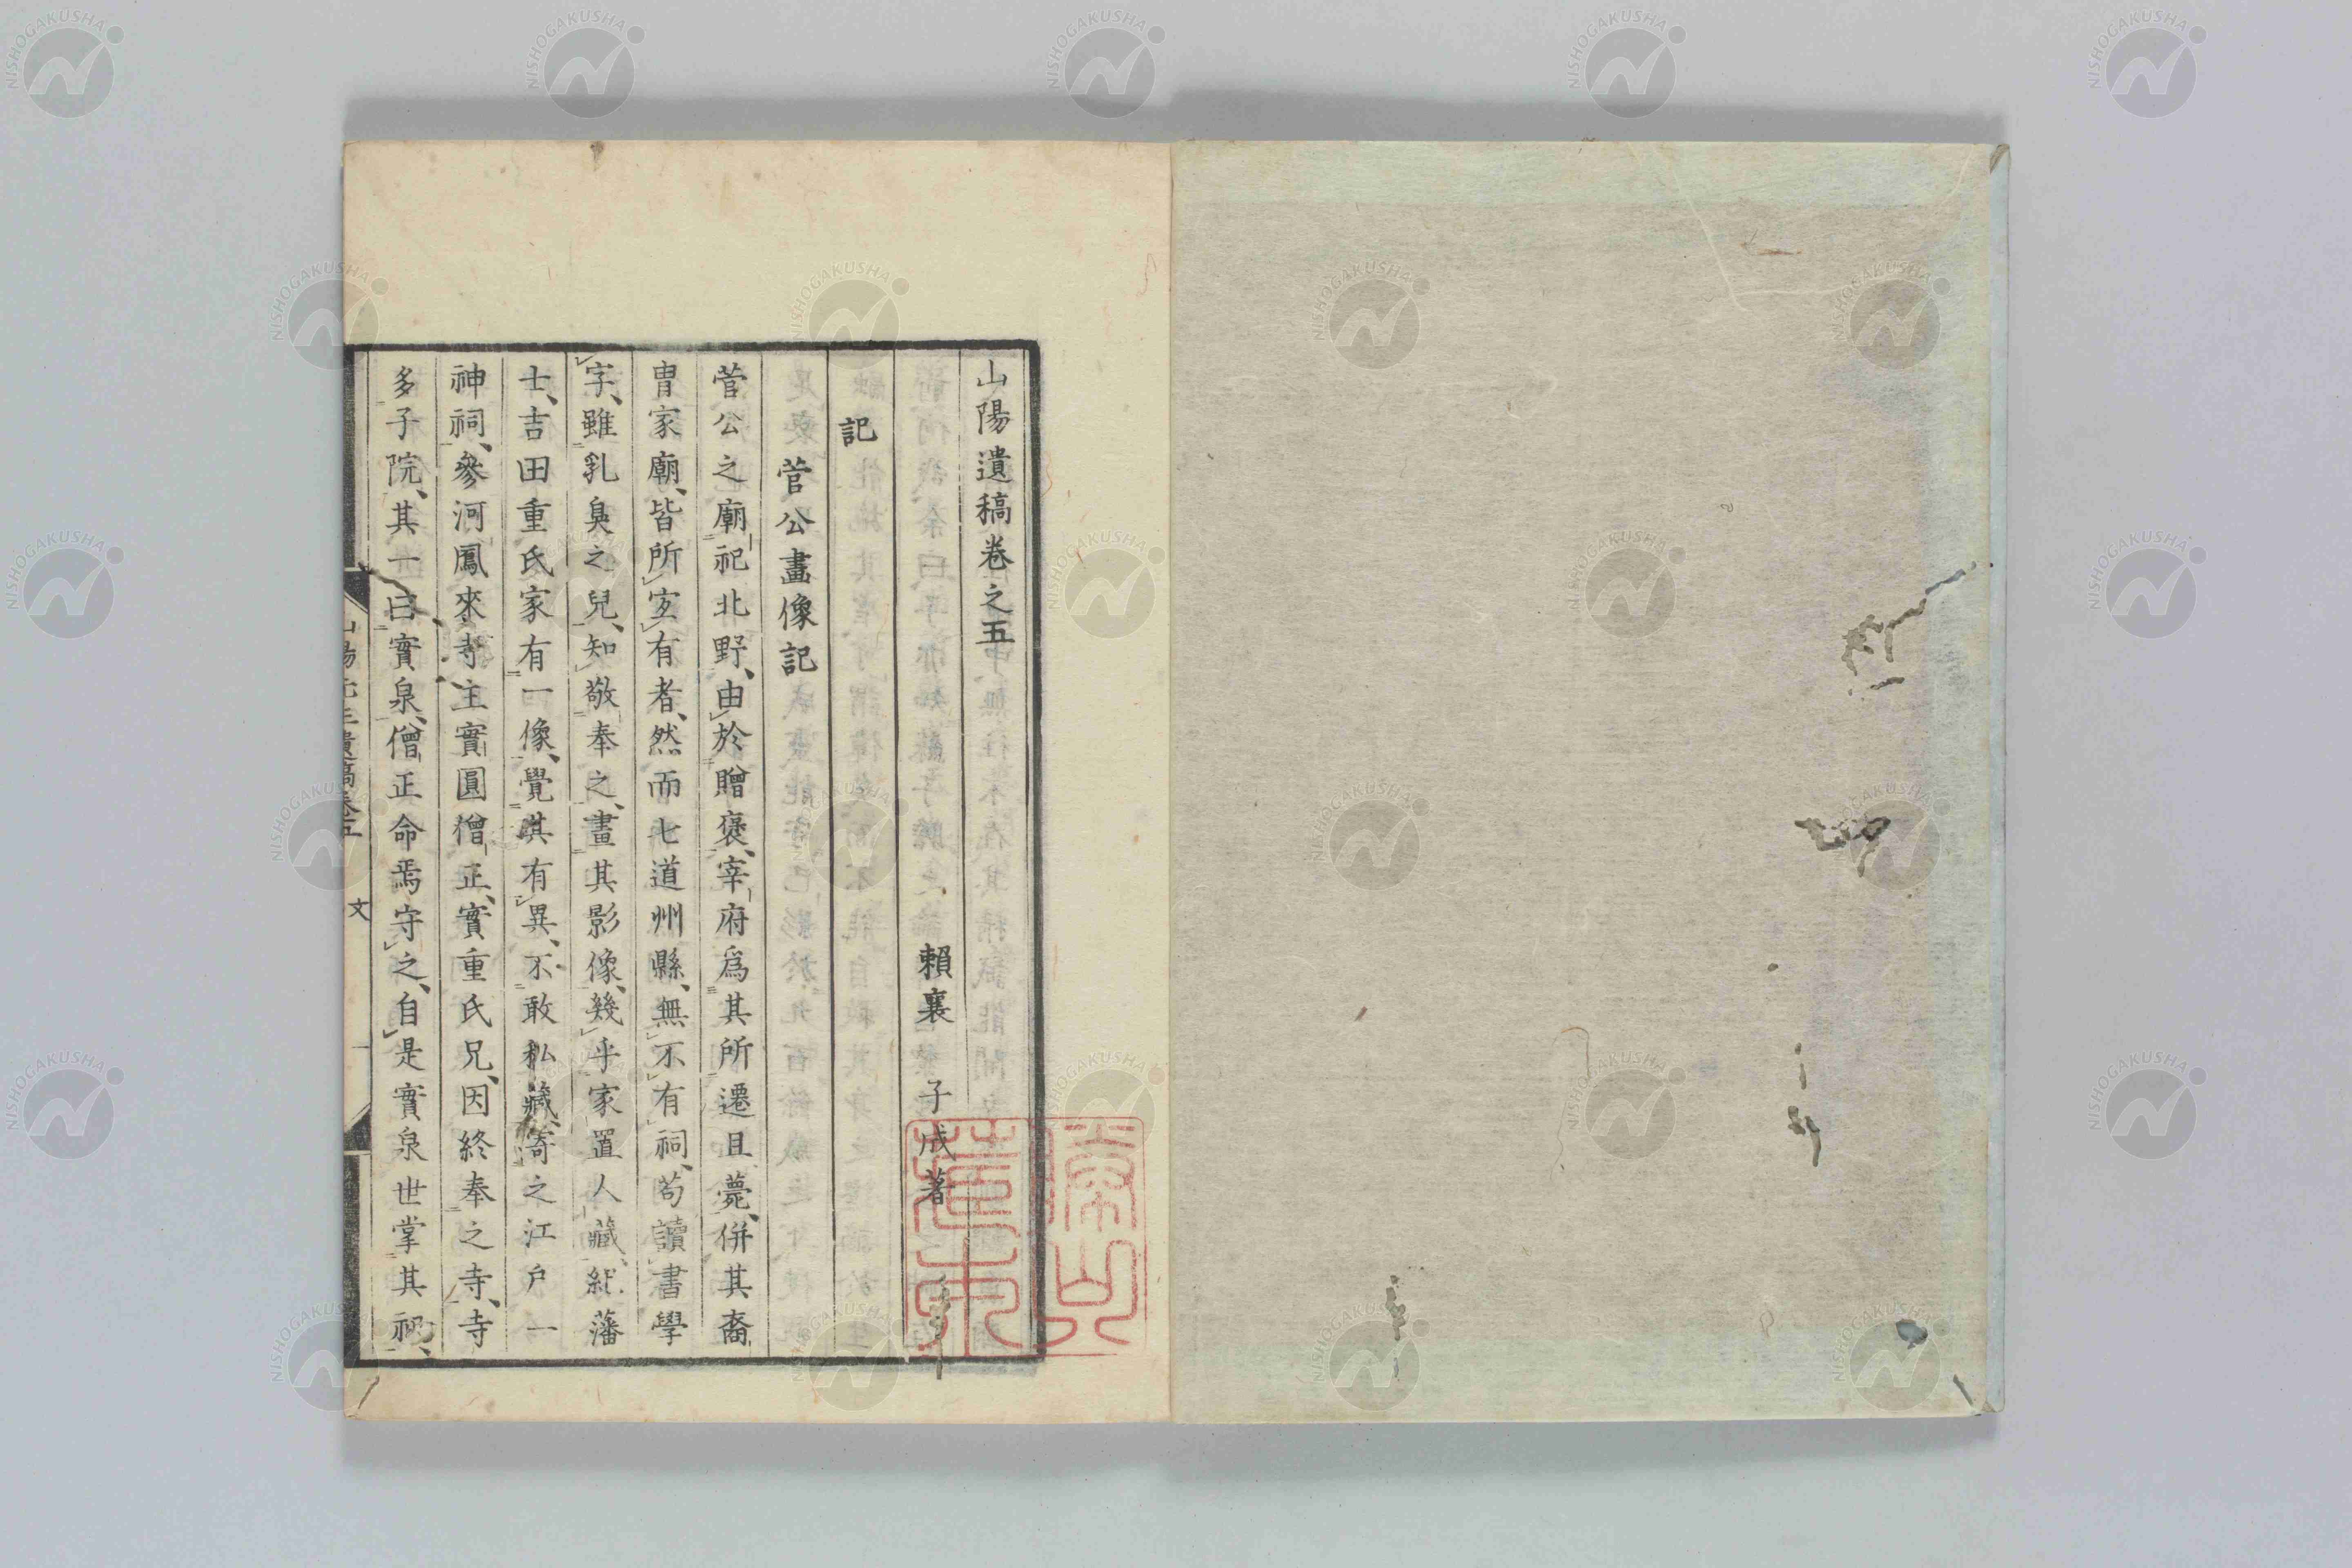 山陽遺稿卷之五
賴襄 子成著
記
菅公畫像記
菅公之廟、祀北野、由於贈褒、宰府爲其所遷且薨、併其裔
胄家廟、皆所宜有者、然而七道州縣、無不有祠、苟讀書學
字、雖乳臭之兒、知敬奉之、畫其影像、幾乎家置人藏、紀藩
士、吉田重氏家有一像、覺其有異、不敢私藏、寄之江戶一
神祠、參河鳳來寺主實圓僧正、實重氏兄、因終奉之寺、寺
多子院、其一曰實泉、僧正命焉守之、自是實泉世掌其祀、
文
一
NISHOGAKUSHA